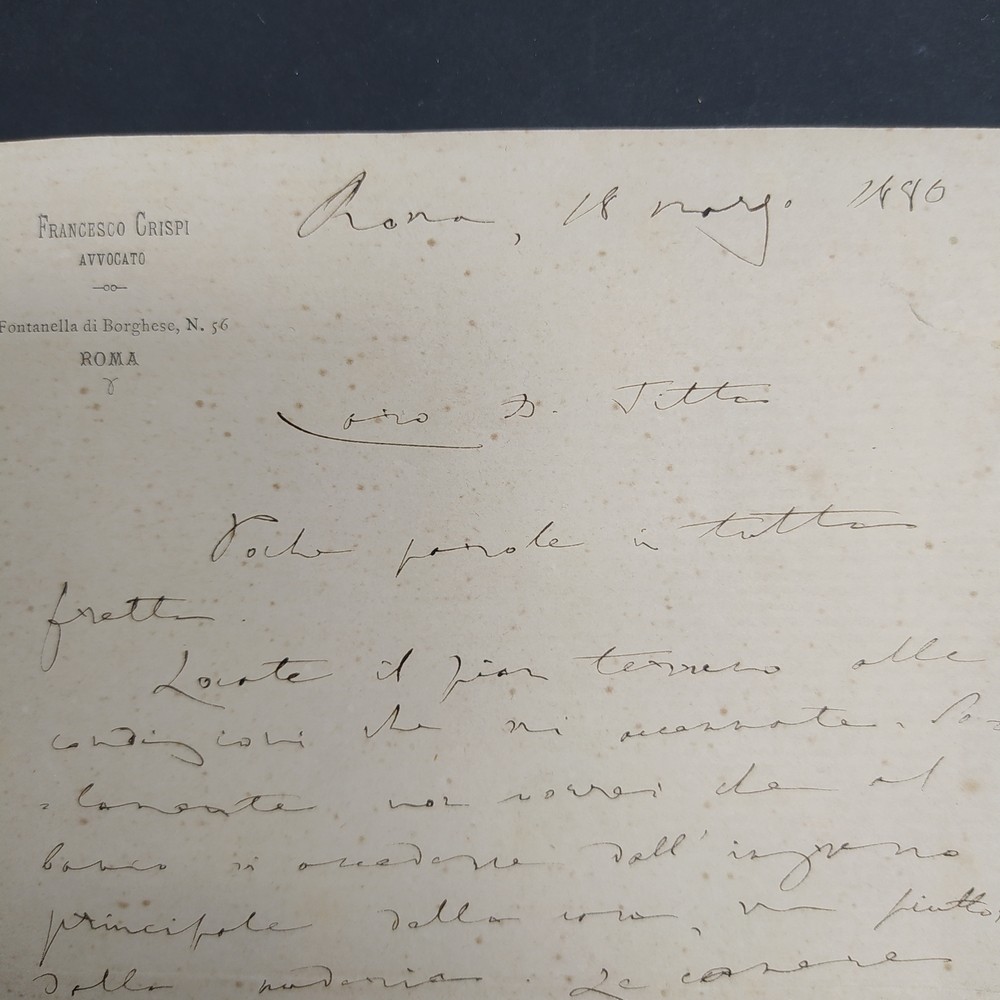 FRANCESCO CRISPI
AVVOCATO
Fontanella di Borghese, N. 56
ROMA
Roma, 18 marzo 1880
Caro D. Titta
Poche parole in tutta
fretta.
Locate il pian terreno alle
condizioni che mi accennate. So=
=lamente non vorrei che al
banco si accedesse dall'ingresso
principale della casa, ma piutto
dalla Le camere